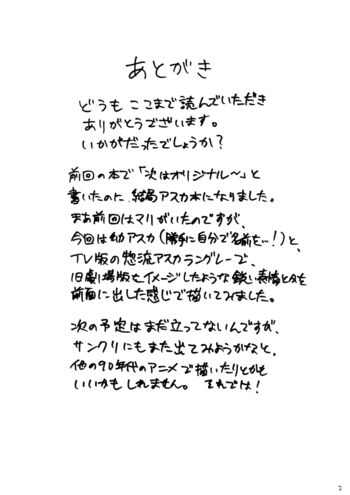 あとがき
どうも ここまで読んでいただき
ありがとうございます。
いかがだったでしょうか?
前回の本で「次はオリジナル〜」と
書いたのに、結局アスカ本になりました。
まあ前回はマリがいたのですが、
今回は幼アスカ(勝手に自分で名前を…!)と、
TV版の惣流アスカラングレーで、
旧劇場版をイメージしたような鋭い表情とかを
前面に出した感じで描いてみました。
次の予定はまだ立ってないんですが、
サンクリにもまた出てみようかなと、
他の90年代のアニメで描いたりとかも
いいかもしれません。 それでは!